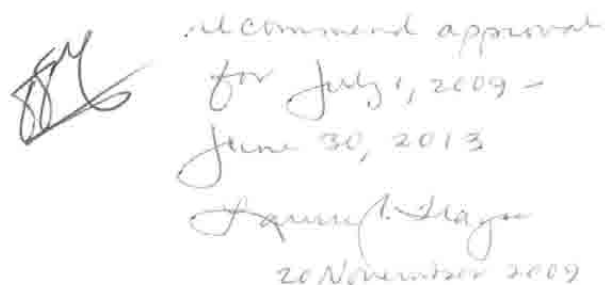 recommend approval
for July 1, 2009 –
June 30, 2013
20 November 2009